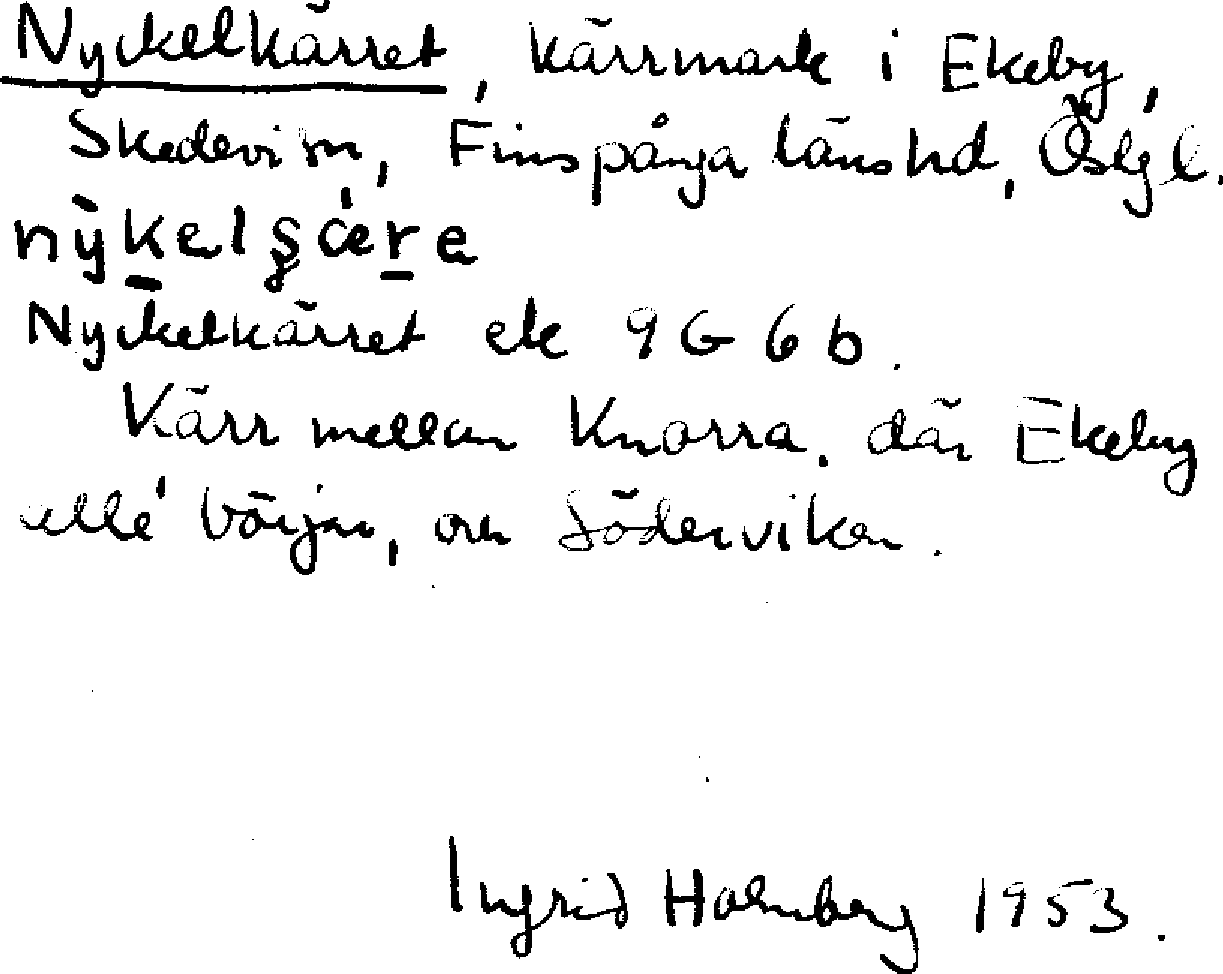 Nyckelkärret, kärrmark i Ekeby,
Skedevi sn, Finspånga läns hd, Östgl.
Nyckelkärret ek 9G6b.
Kärr mellan Knorra, där Ekeby
börjar, och Södervikan.
Ingrid Holmberg 1953.